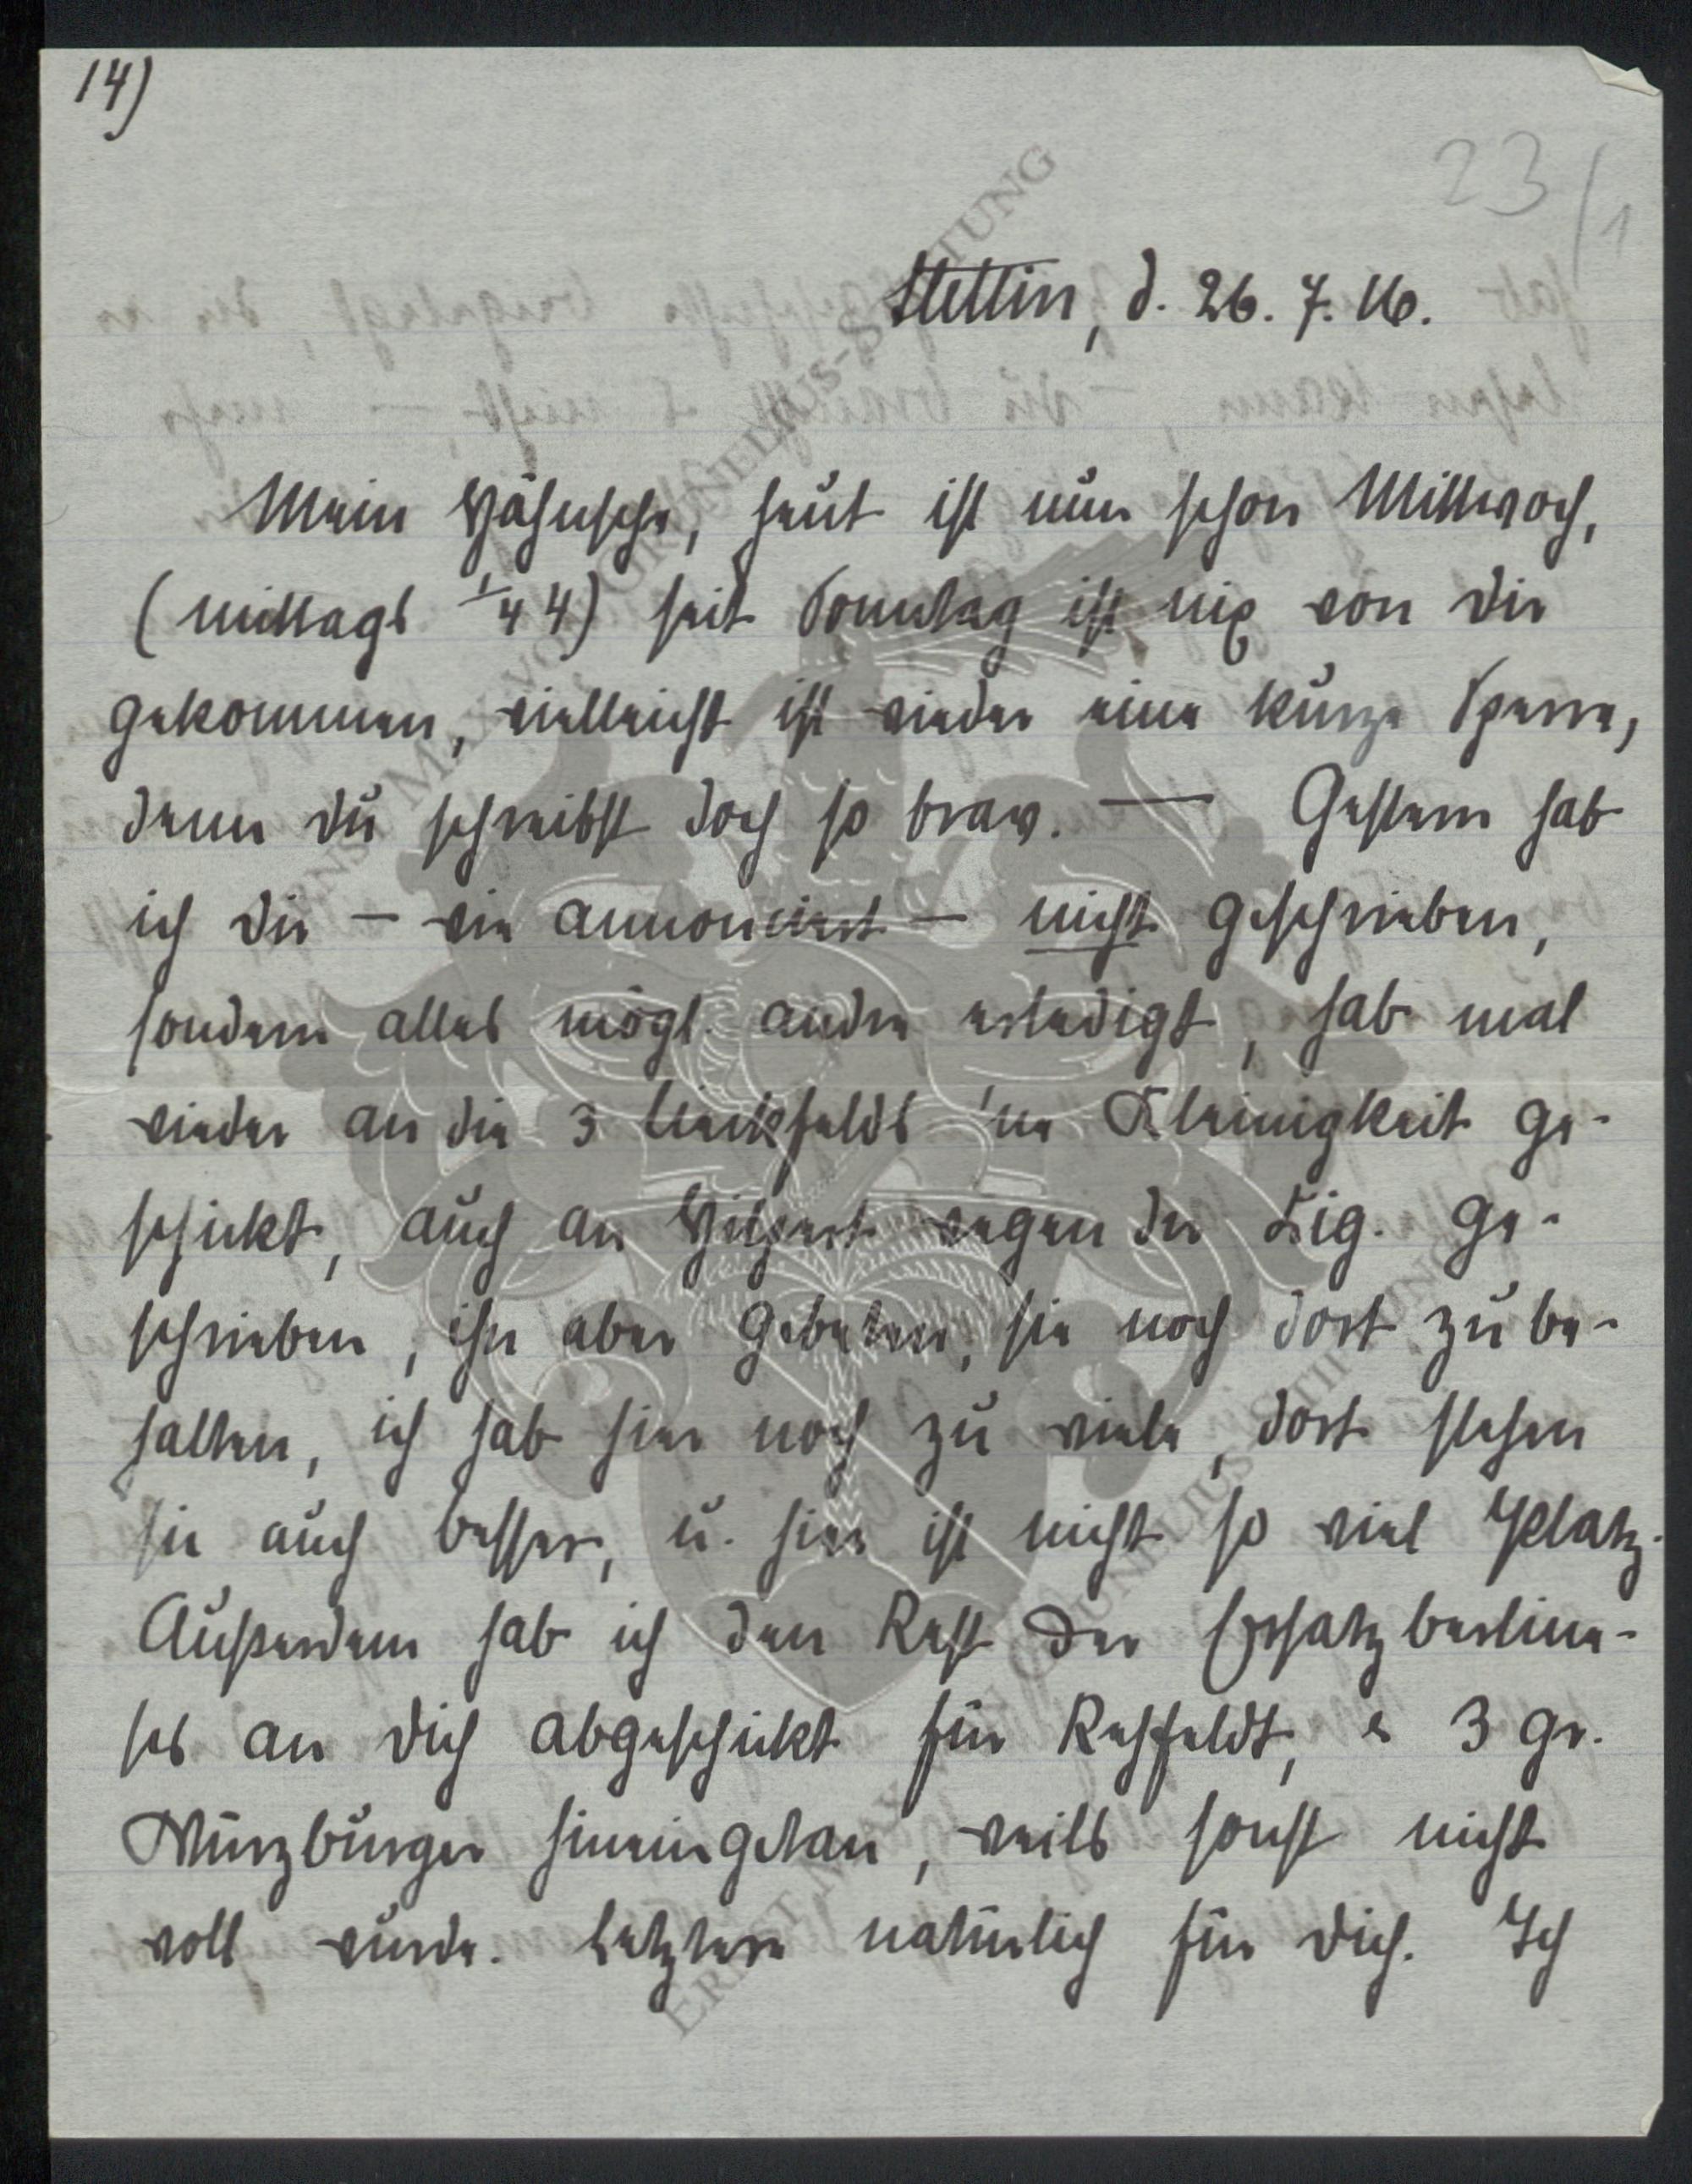 14)
23/1
Stettin, d. 26. 7. 16.
Mein Hähnsche, heut ist nun schon Mittwoch,
(mittags 1/4 4) seit Sonntag ist nix von Dir
gekommen, vielleicht ist wieder eine kurze Sperre,
denn Du schreibst doch so brav. — Gestern hab
ich Dir – wie annonciert – nicht geschrieben,
sondern alles mögl. andre erledigt, hab mal
wieder an die 3 'ne Kleinigkeit ge-
schickt, auch an wegen der Zig. ge-
schrieben, ihn aber gebeten, sie noch dort zu be-
halten, ich hab hier noch zu viele, dort stehen
sie auch besser, u. hier ist nicht so viel Platz.
Außerdem hab ich den Rest der Ersatzberline-
ses an Dich abgeschickt für Rehfeldt, & 3 gr.
Würzburger hineingetan, weils sonst nicht
voll wurde. Letztere natürlich für Dich. Ich
ERNST MAX VON GRUNELIUS-STIFTUNG
ERNST MAX VON GRUNELIUS-STIFTUNG